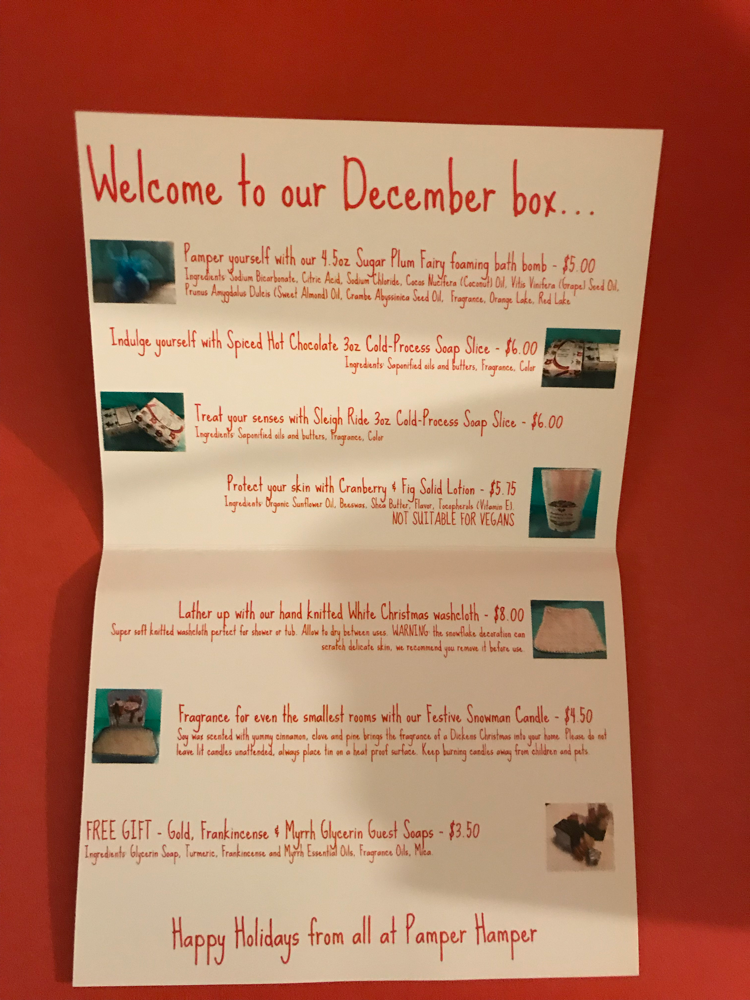 Welcome to our December box...
Pamper yourself with our 4.5oz Sugar Plum Fairy foaming bath bomb - $5.00
Ingredients: Sodium Bicarbonate, Citric Acid, Sodium Chloride, Cocos Nucifera (Coconut) Oil, Vitis Vinifera (Grape) Seed Oil,
Prunus Amygdalus Dulcis (Sweet Almond) Oil, Crambe Abyssinica Seed Oil, Fragrance, Orange Lake, Red Lake
Indulge yourself with Spiced Hot Chocolate 3oz Cold-Process Soap Slice - $6.00
Ingredients: Saponified oils and butters, Fragrance, Color
Treat your senses with Sleigh Ride 3oz Cold-Process Soap Slice - $6.00
Ingredients: Saponified oils and butters, Fragrance, Color
Protect your skin with Cranberry & Fig Solid Lotion - $5.75
Ingredients: Organic Sunflower Oil, Beeswax, Shea Butter, Flavor, Tocopherols (Vitamin E).
NOT SUITABLE FOR VEGANS
Lather up with our hand knitted White Christmas washcloth - $8.00
Super soft knitted washcloth perfect for shower or tub. Allow to dry between uses. WARNING: the snowflake decoration can
scratch delicate skin, we recommend you remove it before use.
Fragrance for even the smallest rooms with our Festive Snowman Candle - $4.50
Soy wax scented with yummy cinnamon, clove and pine brings the fragrance of a Dickens Christmas into your home. Please do not
leave lit candles unattended, always place tin on a heat proof surface. Keep burning candles away from children and pets.
FREE GIFT - Gold, Frankincense & Myrrh Glycerin Guest Soaps - $3.50
Ingredients: Glycerin Soap, Turmeric, Frankincense and Myrrh Essential Oils, Fragrance Oils, Mica.
Happy Holidays from all at Pamper Hamper